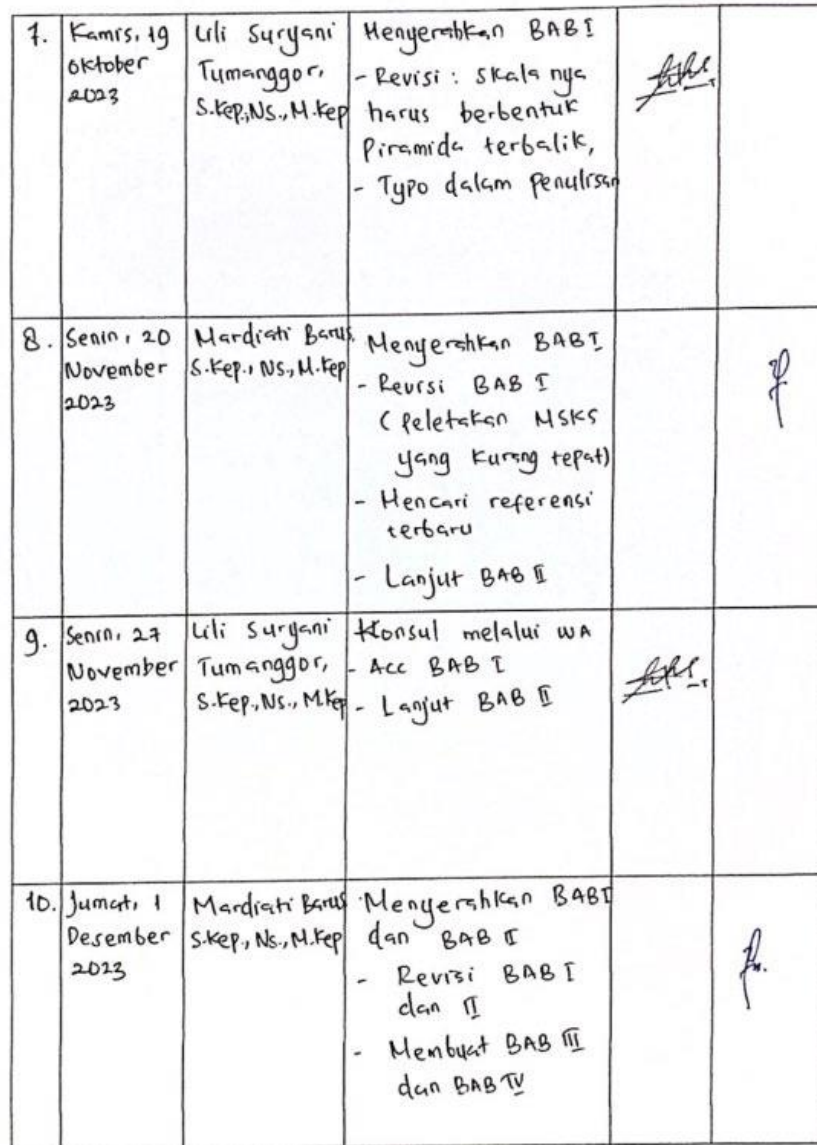 7.
Kamis, 19
Oktober
2023
Lili Suryani
Tumanggor,
S.Kep.,Ns., M.Kep
Menyerahkan BAB I
- Revisi : skala nya
harus berbentuk
Piramida terbalik,
- Typo dalam penulisan
8.
Senin, 20
November
2023
Mardiati Barus,
S.Kep., Ns., M.Kep
Menyerahkan BAB I
- Revisi BAB I
(Peletakan MSKS
yang kurang tepat)
- Mencari referensi
terbaru
- Lanjut BAB II
9.
Senin, 27
November
2023
Lili Suryani
Tumanggor,
S.Kep., Ns., M.Kep
Konsul melalui WA
- Acc BAB I
- Lanjut BAB II
10.
Jumat, 1
Desember
2023
Mardiati Barus
S.Kep., Ns., M.Kep
Menyerahkan BAB I
dan BAB II
- Revisi BAB I
dan II
- Membuat BAB III
dan BAB IV